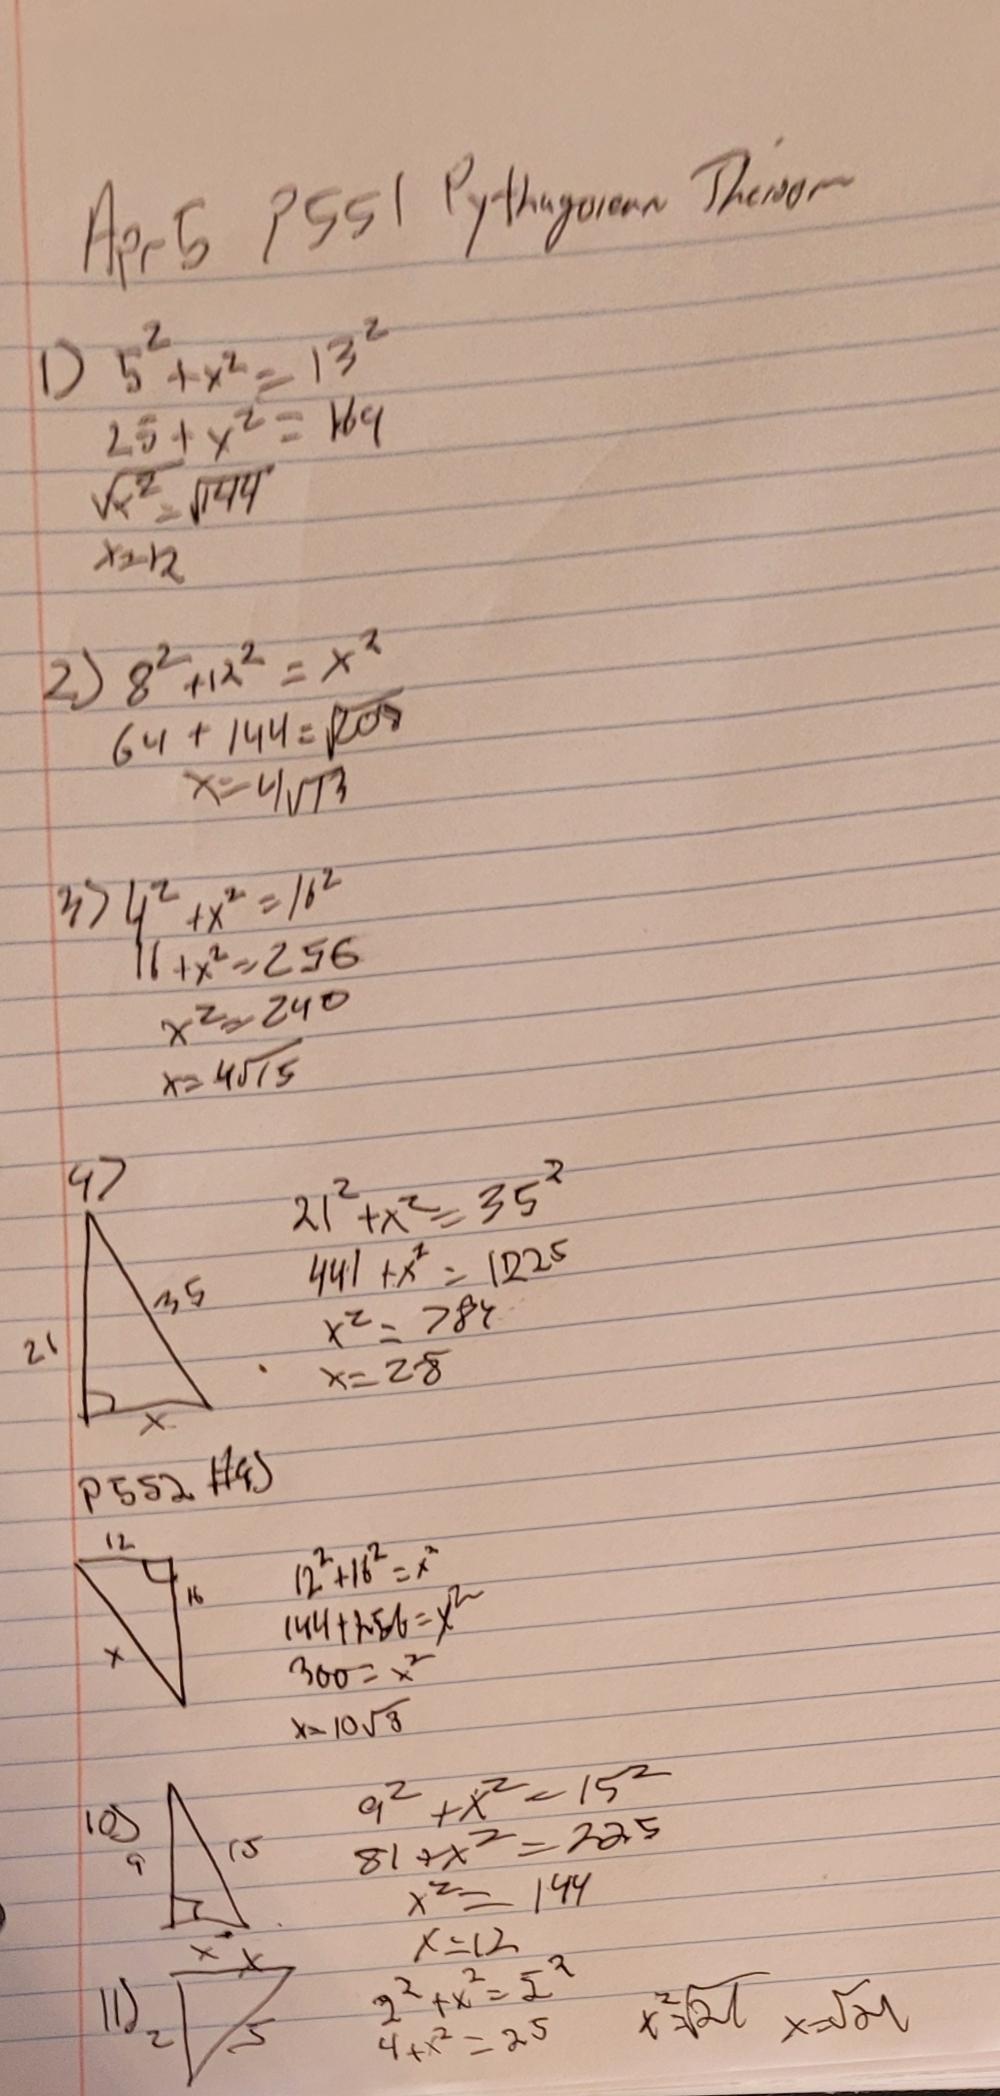 Apr 5 P551 Pythagorean Theroom
1) 5² + x² = 13²
25 + x² = 169
√x² = √144
x = 12
2) 8² + 12² = x²
64 + 144 = √208
x = 4√13
3) 4² + x² = 16²
16 + x² = 256
x² = 240
x = 4√15
4)
21² + x² = 35²
441 + x² = 1225
35
x² = 784
21
x = 28
x
P552 #9)
12
12² + 16² = x²
16
144 + 256 = x²
x
300 = x²
x = 10√3
10)
9² + x² = 15²
9
15
81 + x² = 225
x² = 144
x
x = 12
11)
x
2² + x² = 5²
2
5
4 + x² = 25
x² = √21
x = √21